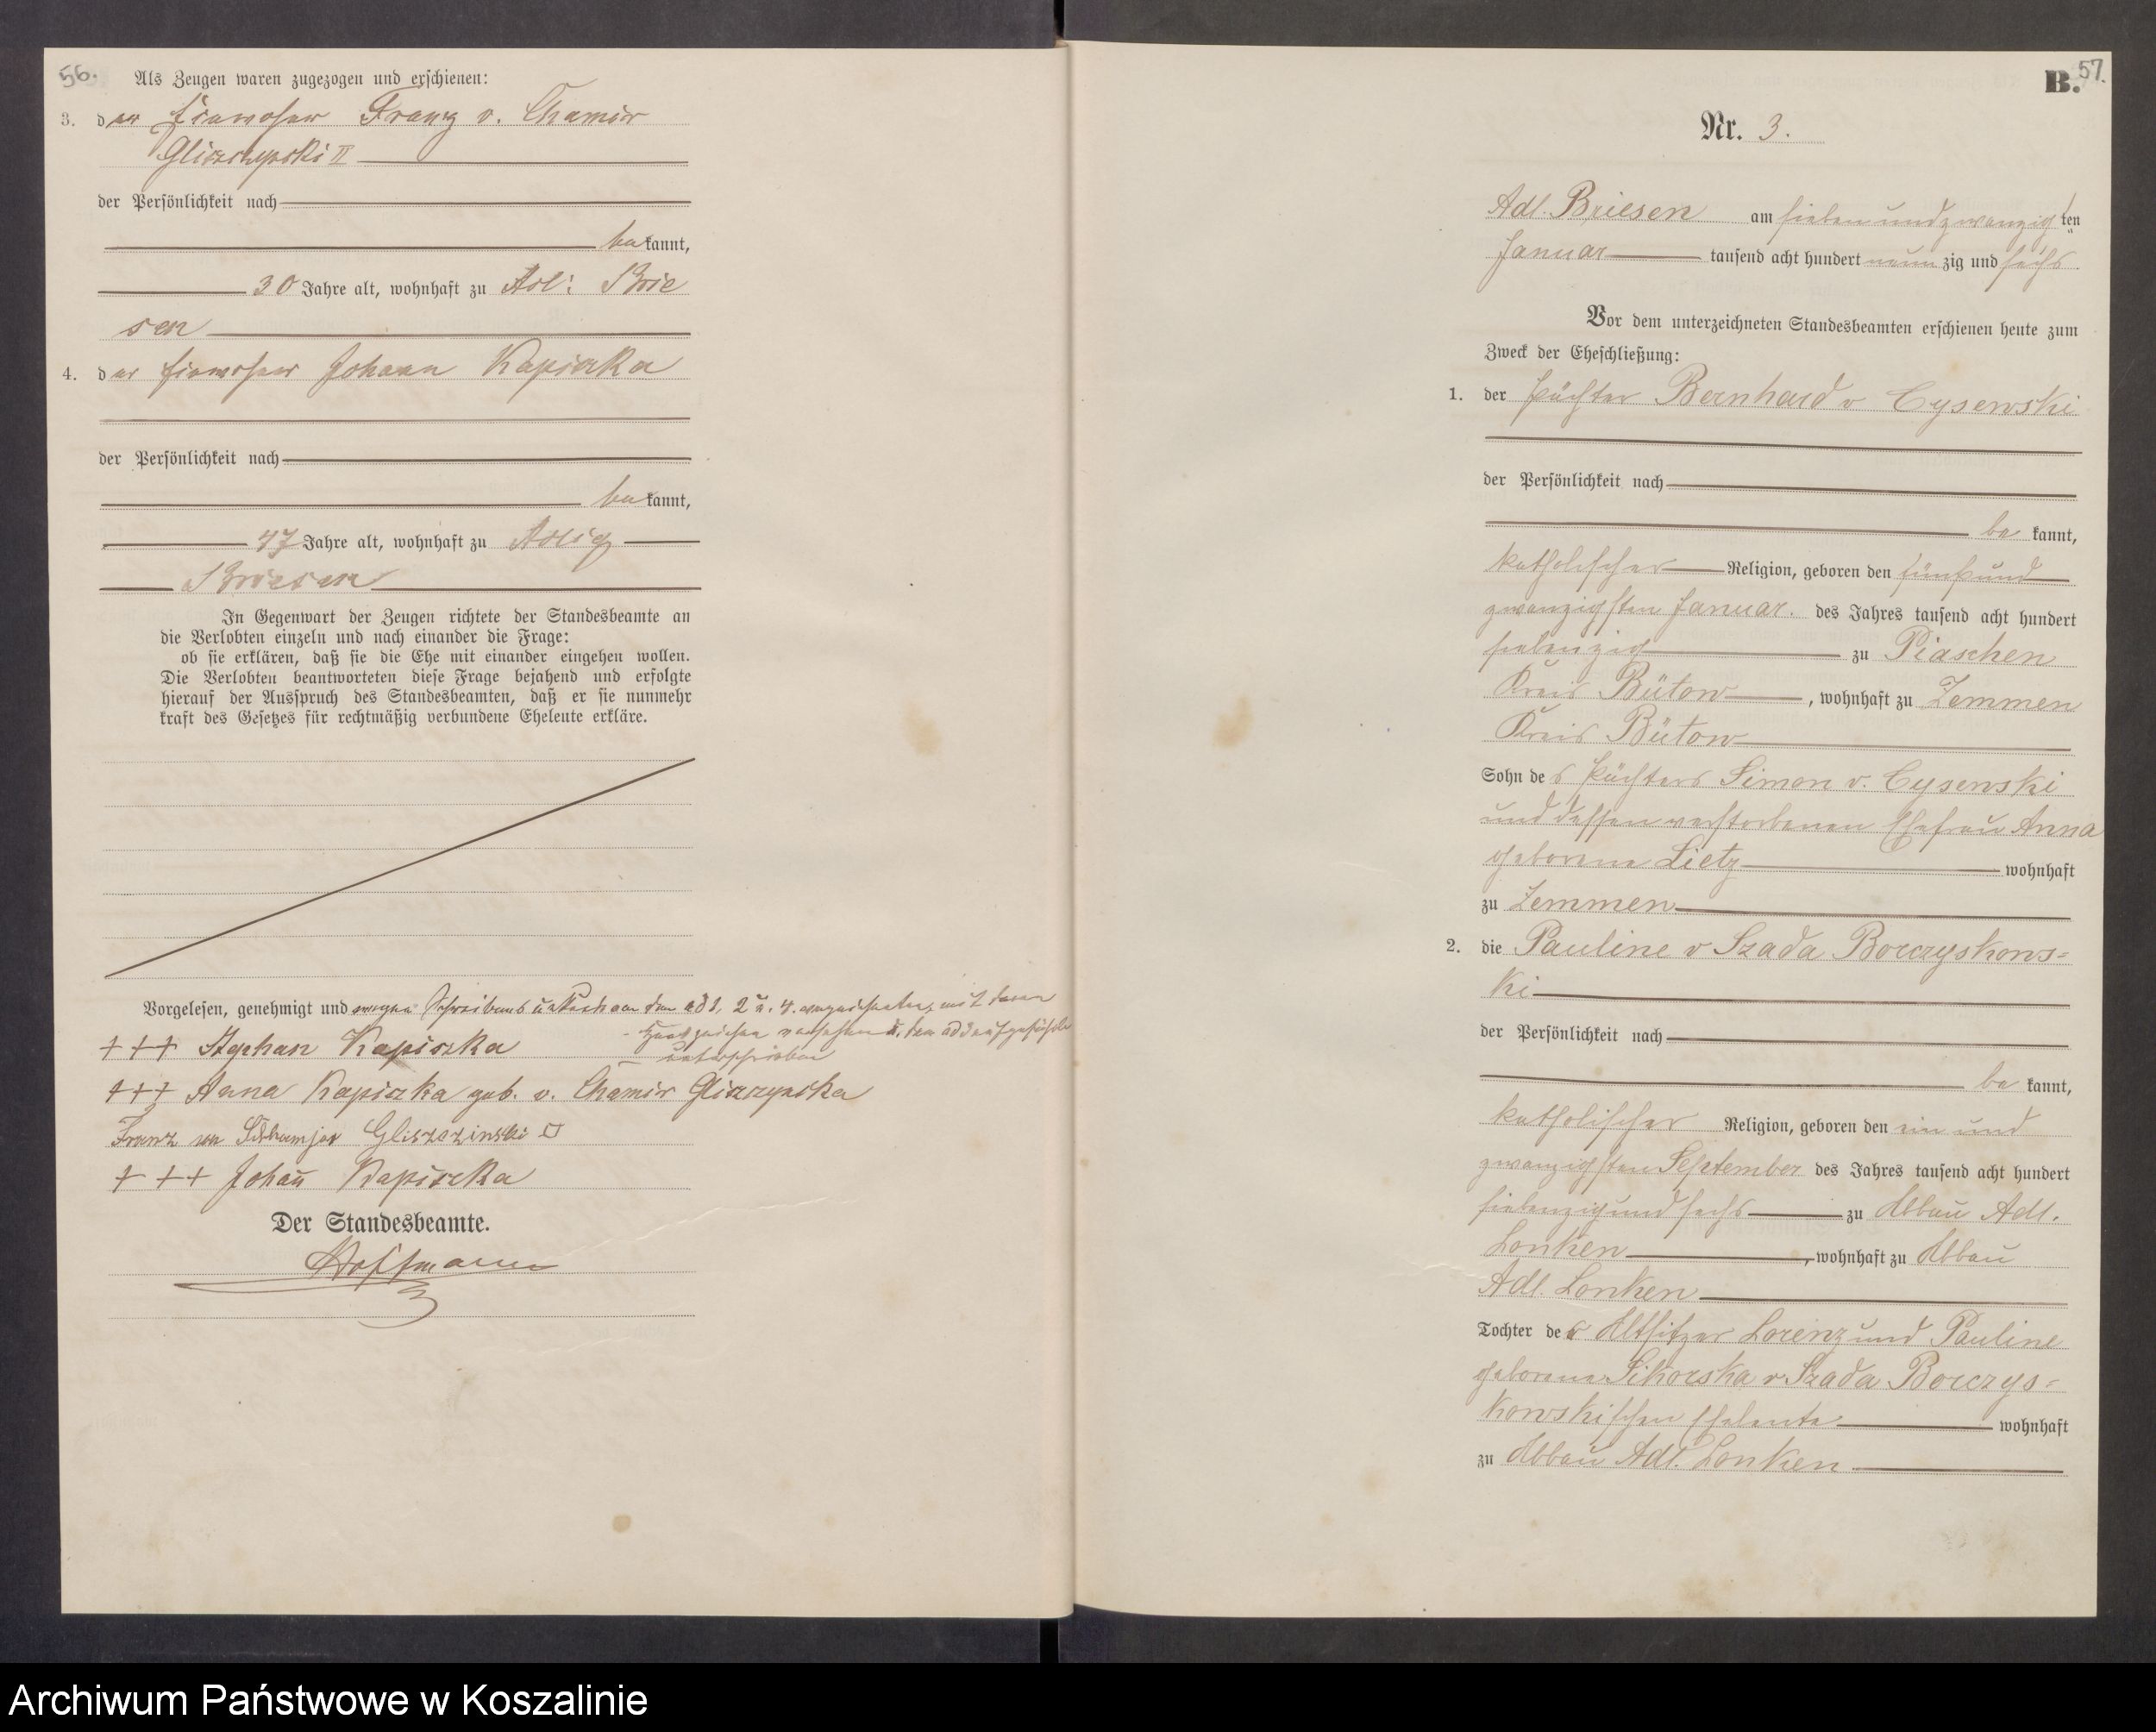 56.
Als Zeugen waren zugezogen und erschienen:
3. der Einwohner Franz v. Chamier
Gliszczynski II
der Persönlichkeit nach
bekannt,
30 Jahre alt, wohnhaft zu Adl: Brie
sen
4. der Einwohner Johann Kapiszka
der Persönlichkeit nach
bekannt,
47 Jahre alt, wohnhaft zu Adlig
Briesen
In Gegenwart der Zeugen richtete der Standesbeamte an
die Verlobten einzeln und nach einander die Frage:
ob sie erklären, daß sie die Ehe mit einander eingehen wollen.
Die Verlobten beantworteten diese Frage bejahend und erfolgte
hierauf der Ausspruch des Standesbeamten, daß er sie nunmehr
kraft des Gesetzes für rechtmäßig verbundene Eheleute erkläre.
Vorgelesen, genehmigt und wegen Schreibens von den ad 1, 2 u. 4. mit deren
Handzeichen versehen u. von ad 3
unterschrieben
+++ Stephan Kapiszka
+++ Anna Kapiszka geb. v. Chamier Gliszczynska
Franz Gliszczinski
+++ Johañ Kapiszka
Der Standesbeamte.
Hoffmann
B. 57.
Nr. 3.
Adl. Briesen am siebenundzwanzigsten
Januar tausend acht hundert neunzig und sechs
Vor dem unterzeichneten Standesbeamten erschienen heute zum
Zweck der Eheschließung:
1. der Pächter Bernhard v Cysewski
der Persönlichkeit nach
bekannt,
katholischer Religion, geboren den fünfund
zwanzigsten Januar. des Jahres tausend acht hundert
siebenzig zu Piaschen
Kreis Bütow, wohnhaft zu Zemmen
Kreis Bütow
Sohn des Pächters Simon v. Cysewski
und dessen verstorbenen Ehefrau Anna
geborene Lietz wohnhaft
zu Zemmen
2. die Pauline v Szada Borczyskows=
ki
der Persönlichkeit nach
bekannt,
katholischer Religion, geboren den ein und
zwanzigsten September des Jahres tausend acht hundert
siebenzigundsechs zu Abbau Adl.
Lonken, wohnhaft zu Abbau
Adl. Lonken
Tochter der Altsitzer Lorenz und Pauline
geborene Sikorska v Szada Borczys=
kowskischen Eheleute wohnhaft
zu Abbau Adl. Lonken
Archiwum Państwowe w Koszalinie